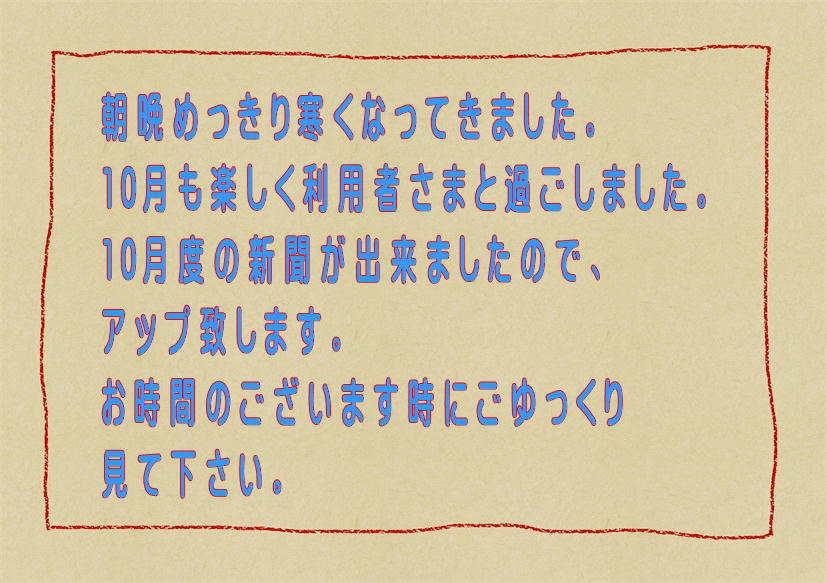 朝晩めっきり寒くなってきました。
10月も楽しく利用者さまと過ごしました。
10月度の新聞が出来ましたので、
アップ致します。
お時間のございます時にごゆっくり
見て下さい。